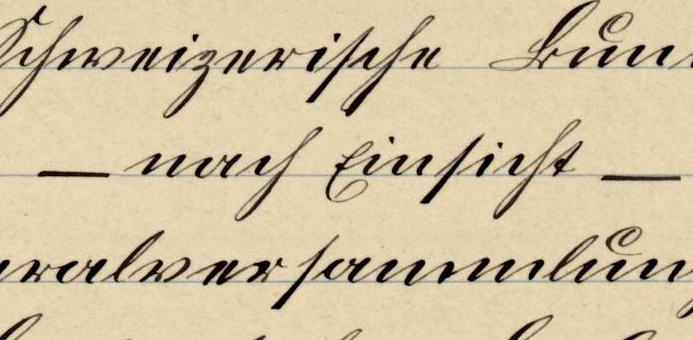 Schweizerische Bun
— nach Einsicht —
ralversammlung